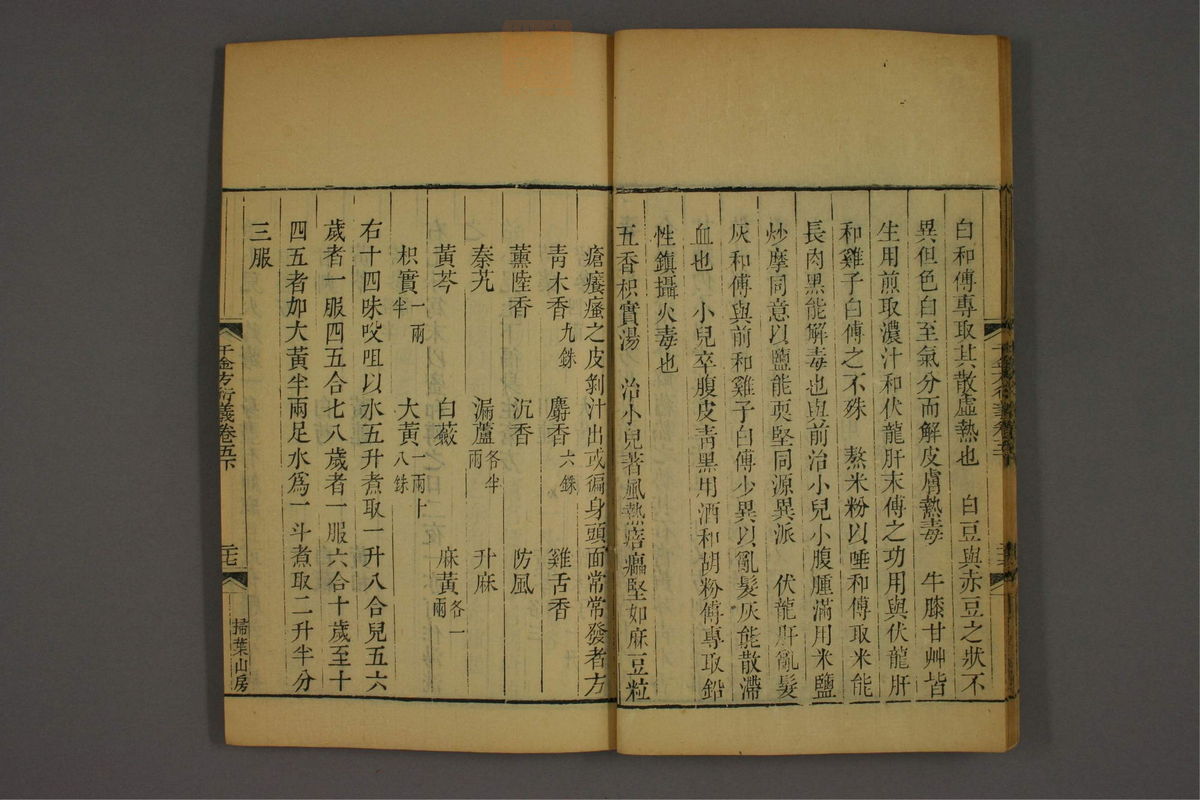 白和傅專取其散虛熱也　白豆與赤豆之狀不
異但色白至氣分而解皮膚熱毒　牛膝甘艸皆
生用煎取濃汁和伏龍肝末傅之功用與伏龍肝
和雞子白傅之不殊　熬米粉以唾和傅取米能
長肉黑能解毒也與前治小兒小腹腫滿用米鹽
炒摩同意以鹽能耎堅同源異派　伏龍肝亂髮
灰和傅與前和雞子白傅少異以亂髮灰能散滯
血也　小兒卒腹皮青黑用酒和胡粉傅專取鉛
性鎮攝火毒也
五香枳實湯　治小兒著風熱㾦㿔堅如麻豆粒
瘡癢瘙之皮剝汁出或徧身頭面常常發者方
青木香九銖　麝香六銖　雞舌香
薰陸香　沉香　防風
秦艽　漏蘆各半兩　升麻
黃芩　白蘞　麻黃各一兩
枳實一兩半　大黃一兩十八銖
右十四味㕮咀以水五升煮取一升八合兒五六
歲者一服四五合七八歲者一服六合十歲至十
四五者加大黃半兩足水爲一斗煮取二升半分
三服
千金方衍義卷五下
二七
掃葉山房